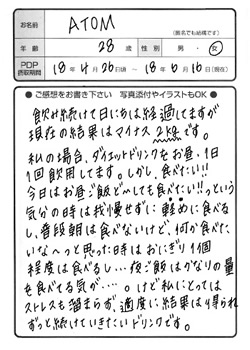 お名前 ATOM
(匿名でも結構です)
年齢 28歳 性別 男・女
PDP摂取期間 18年4月26日頃〜18年6月16日(現在)
●ご感想をお書き下さい 写真添付やイラストもOK●
飲み続けて日にちは経過してますが
現在の結果はマイナス2kgです。
私の場合、ダイエットドリンクをお昼、1日
1回飲用してます。しかし、食べたい!!
今日はお昼ご飯どーしても食べたい!!っていう
気分の時は我慢せずに軽めに食べる
し、普段朝は食べないけど、何か食べた
いな〜っと思った時はおにぎり1個
程度は食べるし…夜ご飯はかなりの量
を食べてる気が…。けど私にとっては
ストレスも溜まらず、適度に結果は得られ
ずっと続けていきたいドリンクです。